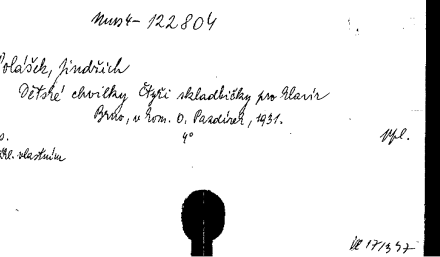 Mus4-122804
Polášek, Jindřich
Dětské chvilky Čtyři skladbičky pro klavír
Brno, v kom. O. Pazdírek, 1931.
4°
vlastním